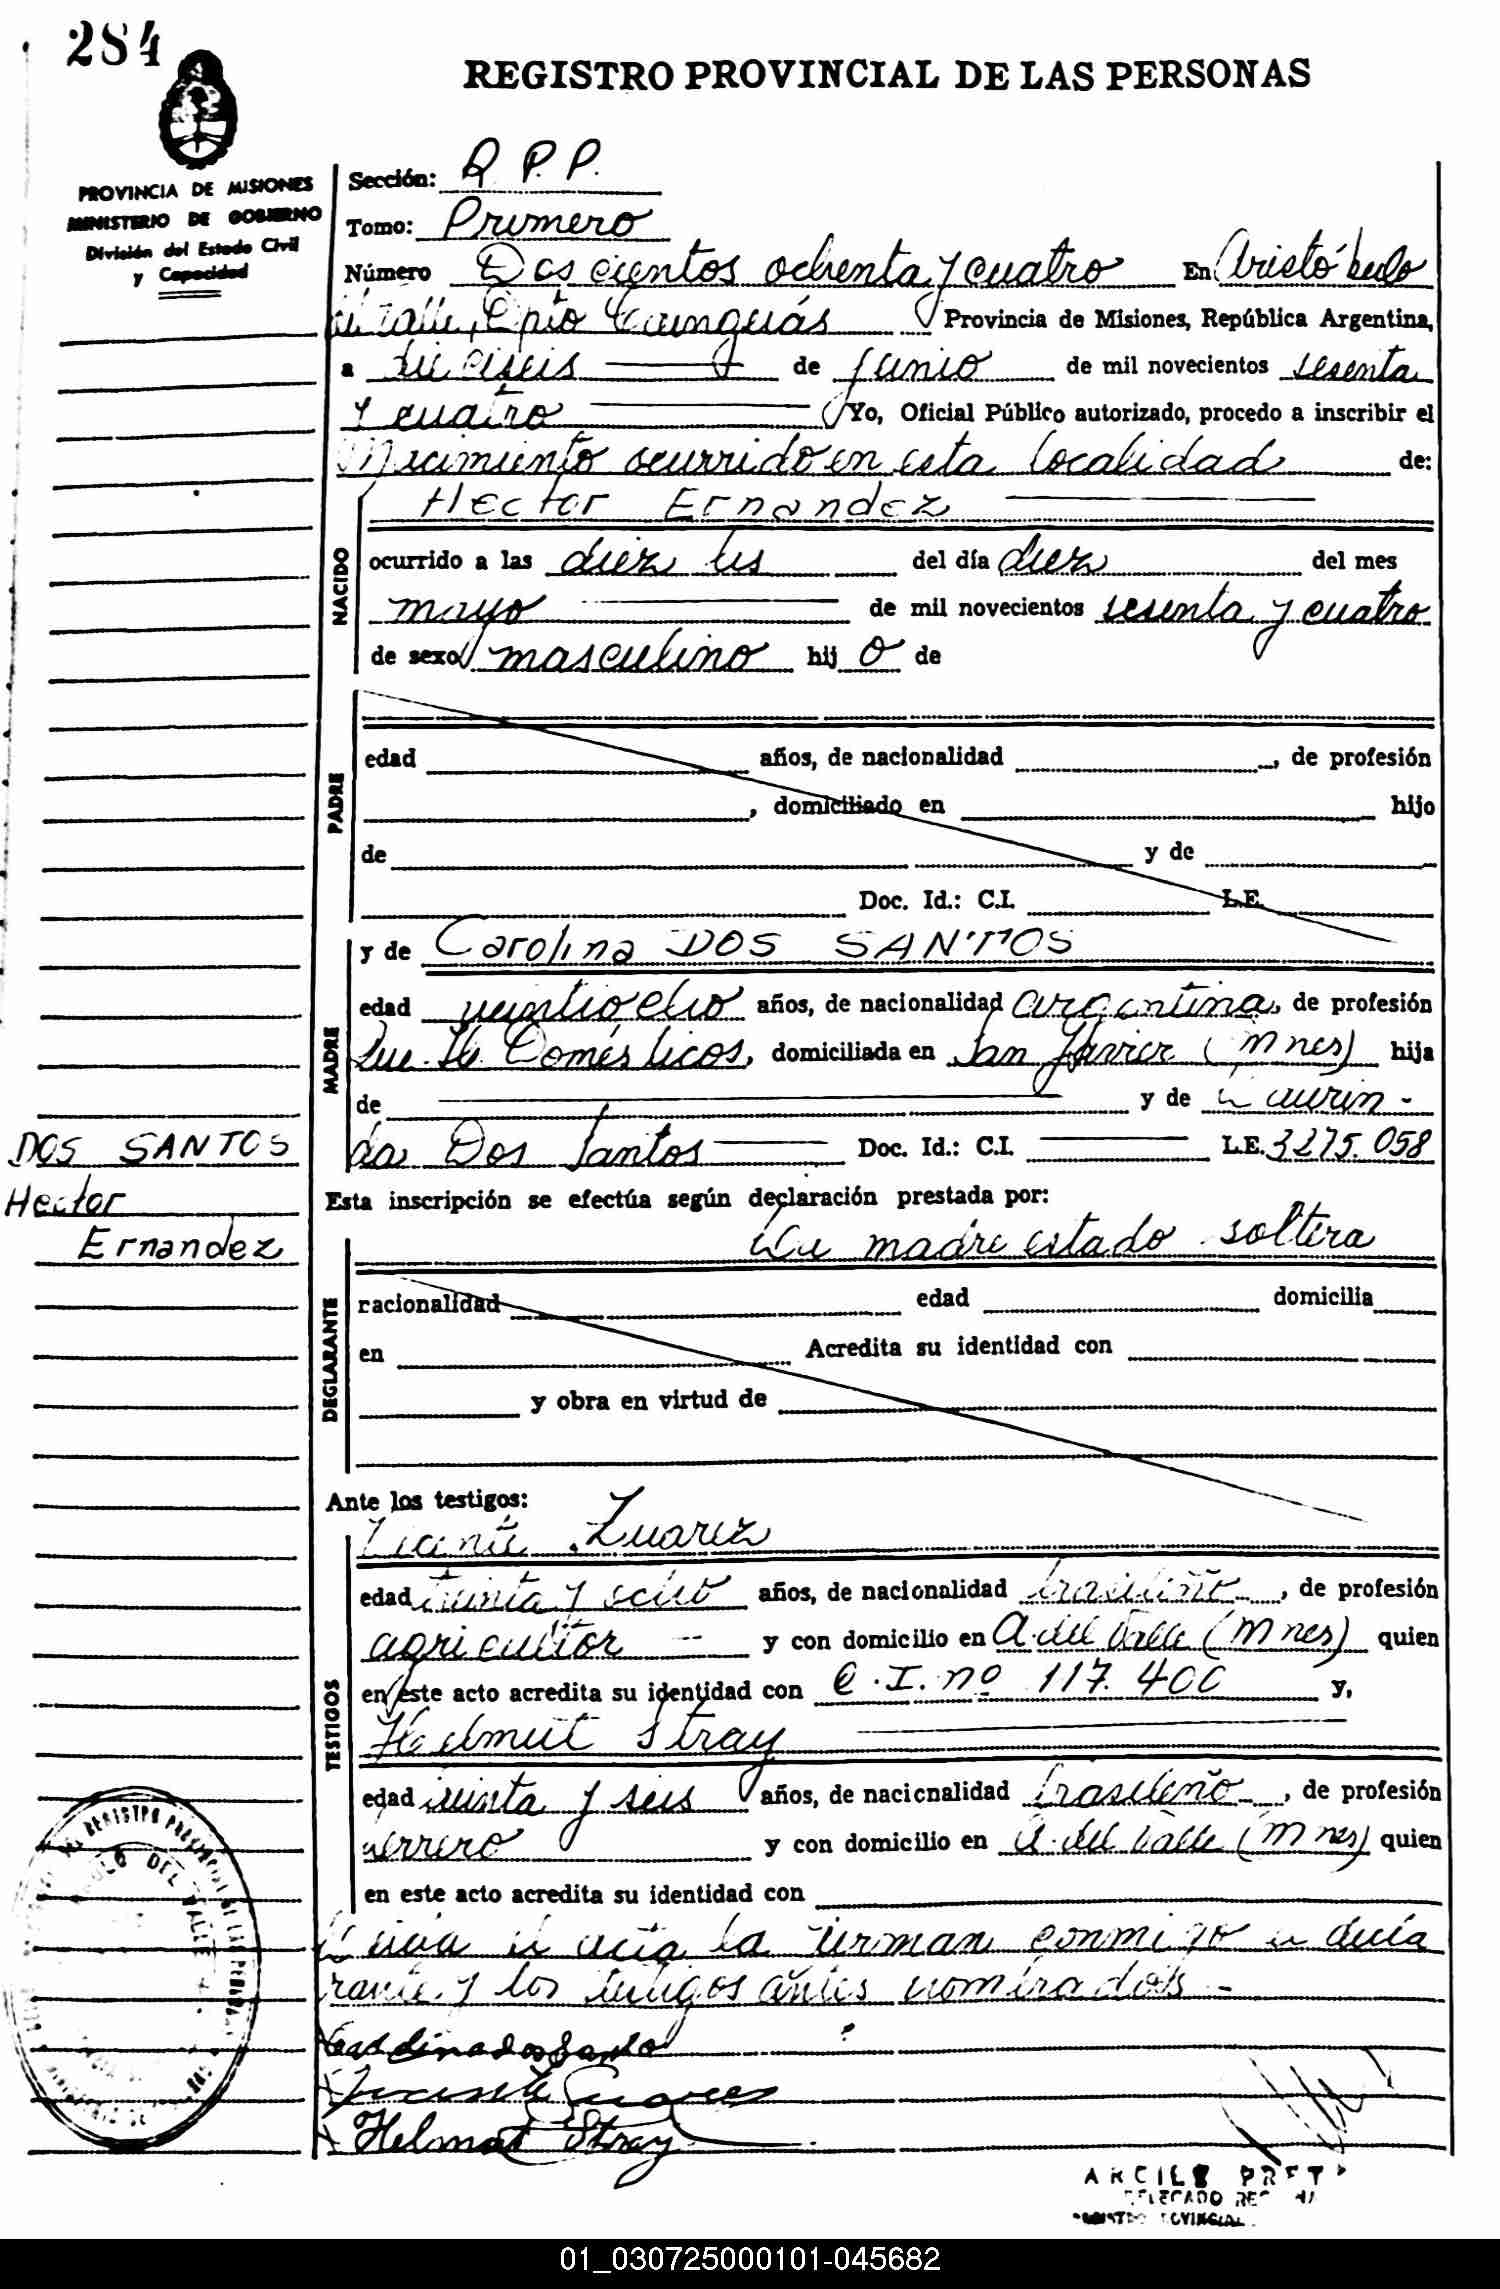 284
REGISTRO PROVINCIAL DE LAS PERSONAS
PROVINCIA DE MISIONES
MINISTERIO DE GOBIERNO
División del Estado Civil
y Capacidad
Sección: R.P.P.
Tomo: Primero
Número Doscientos ochenta y cuatro En Aristóbulo
del Valle, Dpto Cainguás Provincia de Misiones, República Argentina,
a dieciseis de junio de mil novecientos sesenta
y cuatro Yo, Oficial Público autorizado, procedo a inscribir el
Nacimiento ocurrido en esta localidad de:
Hector Ernandez
NACIDO
ocurrido a las diez hs del día diez del mes
mayo de mil novecientos sesenta y cuatro
de sexo masculino hij o de
PADRE
edad años, de nacionalidad , de profesión
, domiciliado en hijo
de y de
Doc. Id.: C.I. L.E.
y de Carolina DOS SANTOS
MADRE
edad veintiocho años, de nacionalidad argentina, de profesión
Domésticos, domiciliada en San Javier (Mnes) hija
de y de Laurin-
da Dos Santos Doc. Id.: C.I. L.E. 3275.058
DOS SANTOS
Hector
Ernandez
Esta inscripción se efectúa según declaración prestada por:
La madre estado soltera
DEGLARANTE
racionalidad edad domicilia
en Acredita su identidad con
y obra en virtud de
Ante los testigos:
Vicente Zuarez
TESTIGOS
edad treinta y ocho años, de nacionalidad brasileño, de profesión
agricultor y con domicilio en A. del Valle (Mnes) quien
en este acto acredita su identidad con C.I. nº 117.400 y,
Helmut Stray
edad treinta y seis años, de nacicnalidad brasileño, de profesión
herrero y con domicilio en A. del Valle (Mnes) quien
en este acto acredita su identidad con
Leida el acta la firman conmigo la decla
rante y los testigos antes nombrados -
Vicente Suarez
Helmut Stray
DEL VALLE
DELEGADO
01_030725000101-045682